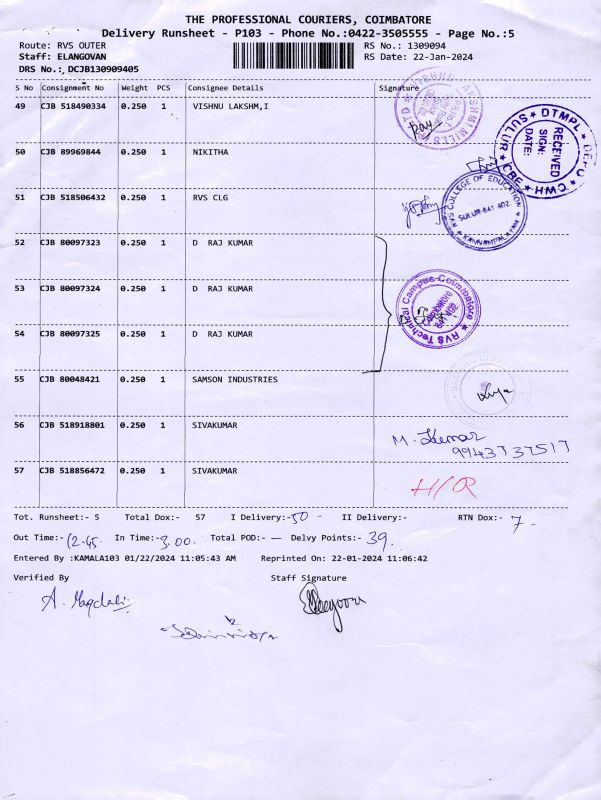 THE PROFESSIONAL COURIERS, COIMBATORE
Delivery Runsheet - P103 - Phone No.:0422-3505555 - Page No.:5
Route: RVS OUTER RS No.: 1309094
Staff: ELANGOVAN RS Date: 22-Jan-2024
DRS No.: DCJB130909405
S No Consignment No Weight PCS Consignee Details Signature
49 CJB 518490334 0.250 1 VISHNU LAKSHM,I
50 CJB 89969844 0.250 1 NIKITHA
DTMPL
SULUR CBE
RECEIVED
SIGN:
DATE:
51 CJB 518506432 0.250 1 RVS CLG
RVS COLLEGE OF EDUCATION
SULUR-641 402
KANNAMPALAYAM
52 CJB 80097323 0.250 1 D RAJ KUMAR
53 CJB 80097324 0.250 1 D RAJ KUMAR
RVS Technical Campus-Coimbatore
54 CJB 80097325 0.250 1 D RAJ KUMAR
55 CJB 80048421 0.250 1 SAMSON INDUSTRIES
56 CJB 518918801 0.250 1 SIVAKUMAR M. Kumar
9943737517
57 CJB 518856472 0.250 1 SIVAKUMAR H/R
Tot. Runsheet:- 5 Total Dox:- 57 I Delivery:- 50 - II Delivery:- RTN Dox:- 7 -
Out Time:- 12-45 In Time:- 3.00. Total POD:- — Delvy Points:- 39.
Entered By :KAMALA103 01/22/2024 11:05:43 AM Reprinted On: 22-01-2024 11:06:42
Verified By Staff Signature